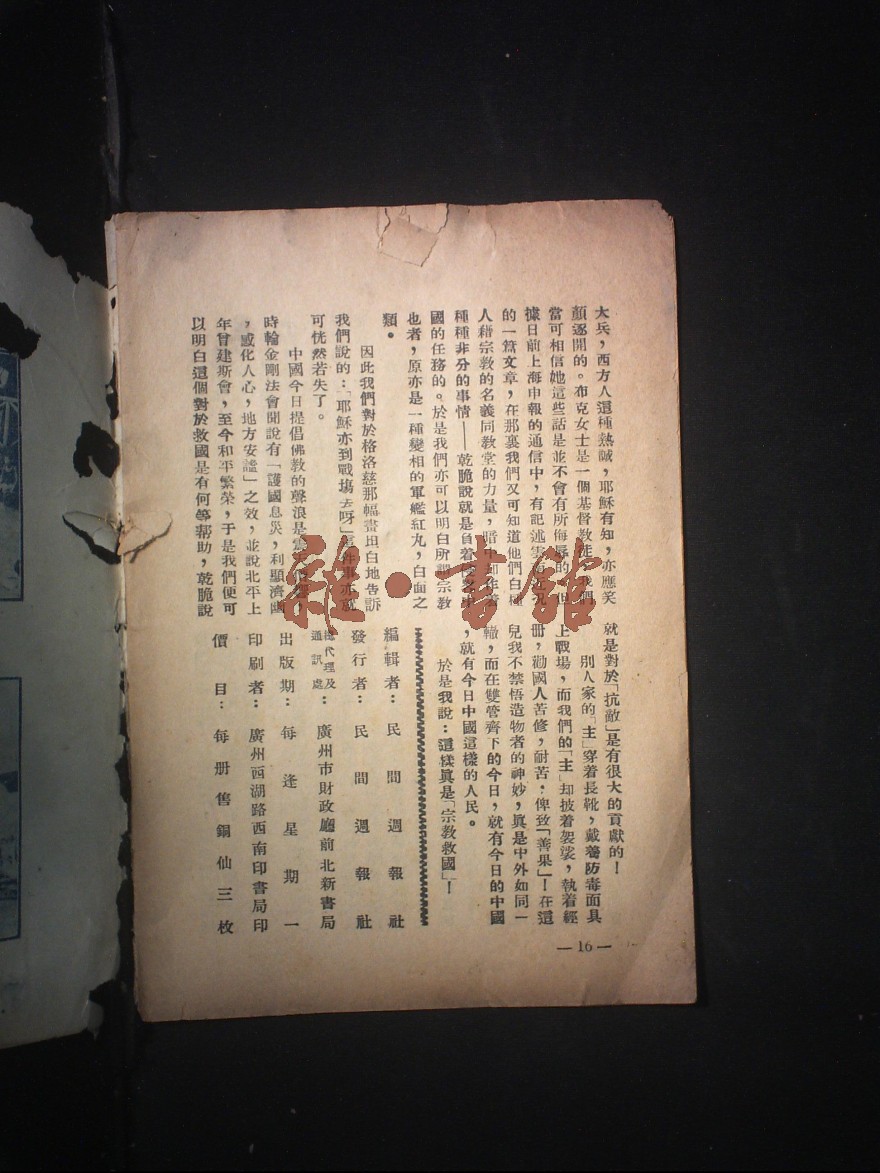 大兵，西方人這種熱誠，耶穌有知，亦應笑
顏逐開的。布克女士是一個基督教徒，我們
當可相信她這些話是並不會有所侮辱的。但
據日前上海申報的通信中，有記述雲南近況
的一篇文章，在那裏我們又可知道他們白種
人藉宗教的名義同教堂的力量，暗中却作着
種種非分的事情——乾脆說就是負着
國的任務的。於是我們亦可以明白所謂宗教
也者，原亦是一種變相的軍艦紅丸，白面之
類。
因此我們對於格洛慈那幅畫坦白地告訴
我們說的：「耶穌亦到戰場去呀」這件事亦就
可恍然若失了。
中國今日提倡佛教的聲浪是震天
時輪金剛法會聞說有「護國息災，利顯濟幽
，感化人心，地方安謐」之效，並說北平上
年曾建斯會，至今和平繁榮，于是我們便可
以明白這個對於救國是有何等幫助，乾脆說
就是對於「抗敵」是有很大的貢獻的！
別人家的「主」穿着長靴，戴着防毒面具
上戰場，而我們的「主」却披着袈裟，執着經
册，勸國人苦修，耐苦，俾致「善果」！在這
兒我不禁悟造物者的神妙，真是中外如同一
轍，而在雙管齊下的今日，就有今日的中國
，就有今日中國這樣的人民。
於是我說：這樣眞是「宗教救國」！
編輯者：民間週報社
發行者：民間週報社
總代理及通訊處：廣州市財政廳前北新書局
出版期：每逢星期一
印刷者：廣州西湖路西南印書局印
價目：每册售銅仙三枚
—16—
雜·書館